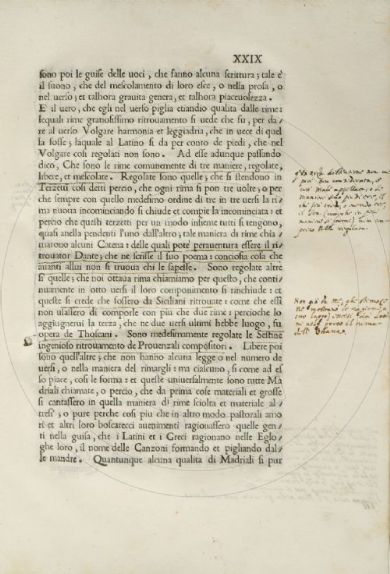 XXIX
sono poi le guise delle uoci, che fanno alcuna scrittura; tale è
il suono, che del mescolamento di loro esce, o nella prosa, o
nel uerso; et talhora grauita genera, et talhora piaceuolezza.
E il uero, che egli nel uerso piglia etiandio qualita dalle rime:
lequali rime gratiosissimo ritrouamento si uede che fu, per da/
re al uerso Volgare harmonia et leggiadria, che in uece di quel
la fosse; laquale al Latino si da per conto de piedi, che nel
Volgare cosi regolati non sono. Ad esse adunque passando
dico, Che sono le rime comunemente di tre maniere, regolate,
libere, et mescolate. Regolate sono quelle; che si stendono in
Terzetti cosi detti percio, che ogni rima si pon tre uolte; o per
che sempre con quello medesimo ordine di tre in tre uersi la ri/
ma nuoua incominciando si chiude et compie la incominciata: et
percio che questi terzetti per un modo insieme tutti si tengono,
quasi anella pendenti l'uno dall'altro; tale maniera di rime chia/
marono alcuni Catena: delle quali potè perauentura essere il ri/
trouator Dante; che ne scrisse il suo poema: conciosia cosa che
auanti allui non si truoua chi le sapesse. Sono regolate altre
si quelle; che noi ottaua rima chiamiamo per questo, che conti/
nuamente in otto uersi il loro componimento si ranchiude: et
queste si crede che fossero da Siciliani ritrouate: come che essi
non usassero di comporle con piu che due rime: percioche lo
aggiugnerui la terza, che ne due uersi ultimi hebbe luogo, fu
opera de Thoscani. Sono medesimamente regolate le Sestine
ingenioso ritrouamento de Prouenzali compositori. Libere poi
sono quell'altre; che non hanno alcuna legge o nel numero de
uersi, o nella maniera del rimargli: ma ciascuno, si come ad es
so piace, cosi le forma: et queste uniuersalmente sono tutte Ma
driali chiamate, o percio, che da prima cose materiali et grosse
si cantassero in quella maniera di rime sciolta et materiale al
tresi; o pure perche cosi piu che in altro modo pastorali amo
ri et altri loro boscarecci auenimenti ragionassero quelle gen
ti nella guisa, che i Latini et i Greci ragionano nelle Eglo
ghe loro, il nome delle Canzoni formando et pigliando dal/
le mandre. Quantunque alcuna qualita di Madriali si pur